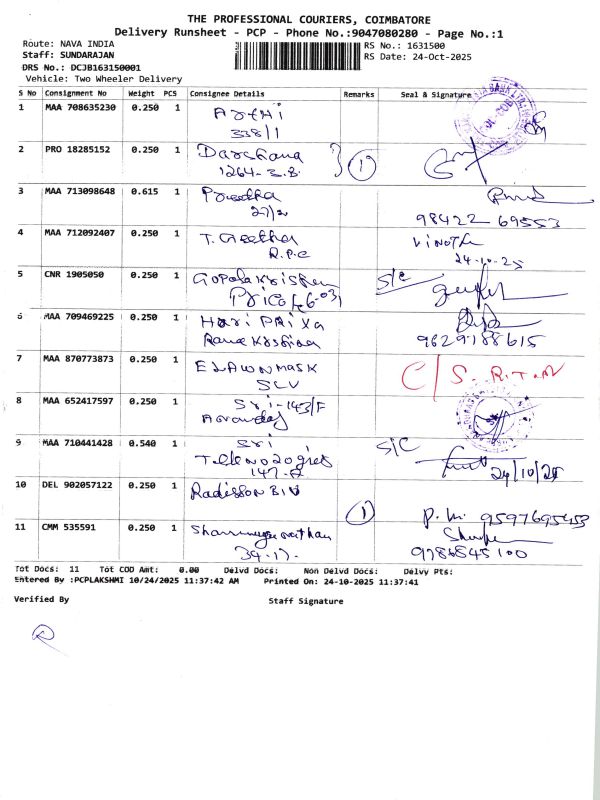 THE PROFESSIONAL COURIERS, COIMBATORE
Delivery Runsheet - PCP - Phone No.:9047080280 - Page No.:1
Route: NAVA INDIA
RS No.: 1631500
Staff: SUNDARAJAN
RS Date: 24-Oct-2025
DRS No.: DCJB163150001
Vehicle: Two Wheeler Delivery
S No Consignment No Weight PCS Consignee Details Remarks Seal & Signature
1 MAA 708635230 0.250 1 Arthi
338/1
2 PRO 18285152 0.250 1 Darshana 1
1264-S.B.
3 MAA 713098648 0.615 1 Preetha
27/2 98422 69553
4 MAA 712092407 0.250 1 T. Geetha Vinoth
R.P.C 24-10-25
5 CNR 1905050 0.250 1 Gopalakrishan S/C
Pricol 6-03)
6 MAA 709469225 0.250 1 Hari PRIYa
Rama Krishna 9629188615
7 MAA 870773873 0.250 1 ELAWNMASK C/S. R.T.N
SLV
8 MAA 652417597 0.250 1 Sri-143/F
9 MAA 710441428 0.540 1 Sri S/C
147-A 24/10/25
10 DEL 902057122 0.250 1 Radisson Blu
1 9597695453
11 CMM 535591 0.250 1 Shanmuganathan
34-17- 9786545100
Tot Docs: 11 Tot COD Amt: 0.00 Delvd Docs: Non Delvd Docs: Delvy Pts:
Entered By :PCPLAKSHMI 10/24/2025 11:37:42 AM Printed On: 24-10-2025 11:37:41
Verified By Staff Signature